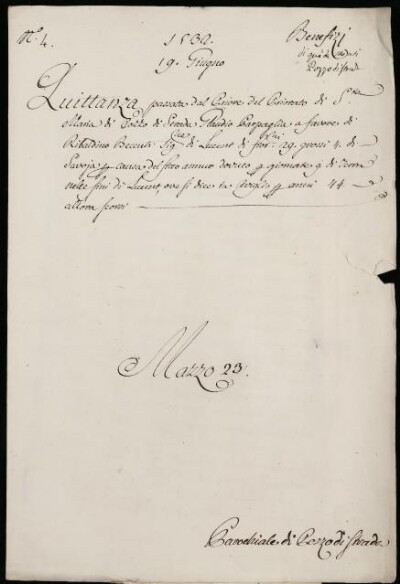 N.° 4.
1532.
19. Giugno
Benefizi
di quà da
Pozzo di strada
Quittanza passata dal Priore del Priorato di S.ta
Maria di Pozzo di Strada Claudio Porporato a favore di
Ribaldino Beccuti Sig.re di Lucent di fior.ni 29. grossi 4. di
Savoja p causa del fitto annuo dovuto p giornate 9 di terra
nelle fini di Lucent, ove si dice la p anni 44
allora scorsi
Mazzo 23.
Parochiale di Pozzo di Strada